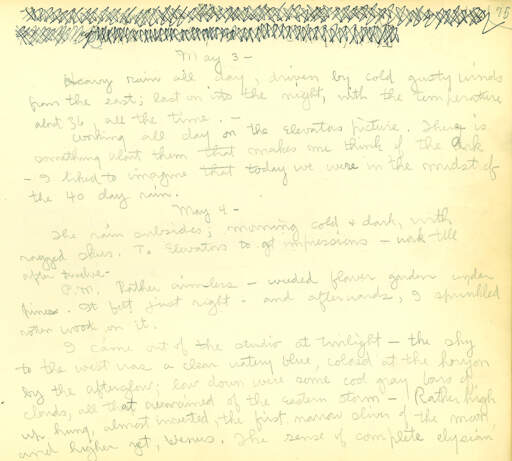 75
May 3 -
Heavy rain all day, driven by cold gusty winds
from the east; last on into the night, with the temperature
about 36, all the time. -
Working all day on the Elevators picture. There is
something about them that makes me think of the Ark
- I liked to imagine that today we were in the midst of
the 40 day rain.
May 4 -
The rain subsides; morning cold & dark, with
ragged skies. To Elevators to get impressions - work till
after twelve -
P.M. Rather aimless - weeded flower garden under
pines. It felt just right - and afterwards, I sprinkled
rotten wood on it.
I came out of the studio at twilight - the sky
to the west was a clear watery blue, colored at the horizon
by the afterglow; low down were some cool gray bars of
clouds, all that remained of the eastern storm - Rather high
up hung, almost inverted, the first narrow sliver of the moon
and higher yet, Venus. The sense of complete elysian